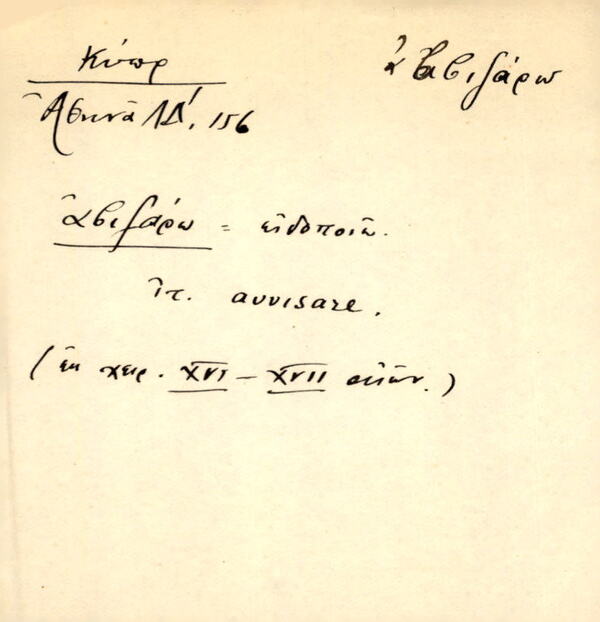 Κύπρ
ἀβιζάρω
Ἀθηνᾶ ΛΔ', 156
ἀβιζάρω = εἰδοποιῶ.
ἰτ. avvisare.
(ἐκ χειρ. XVI - XVII αἰών.)